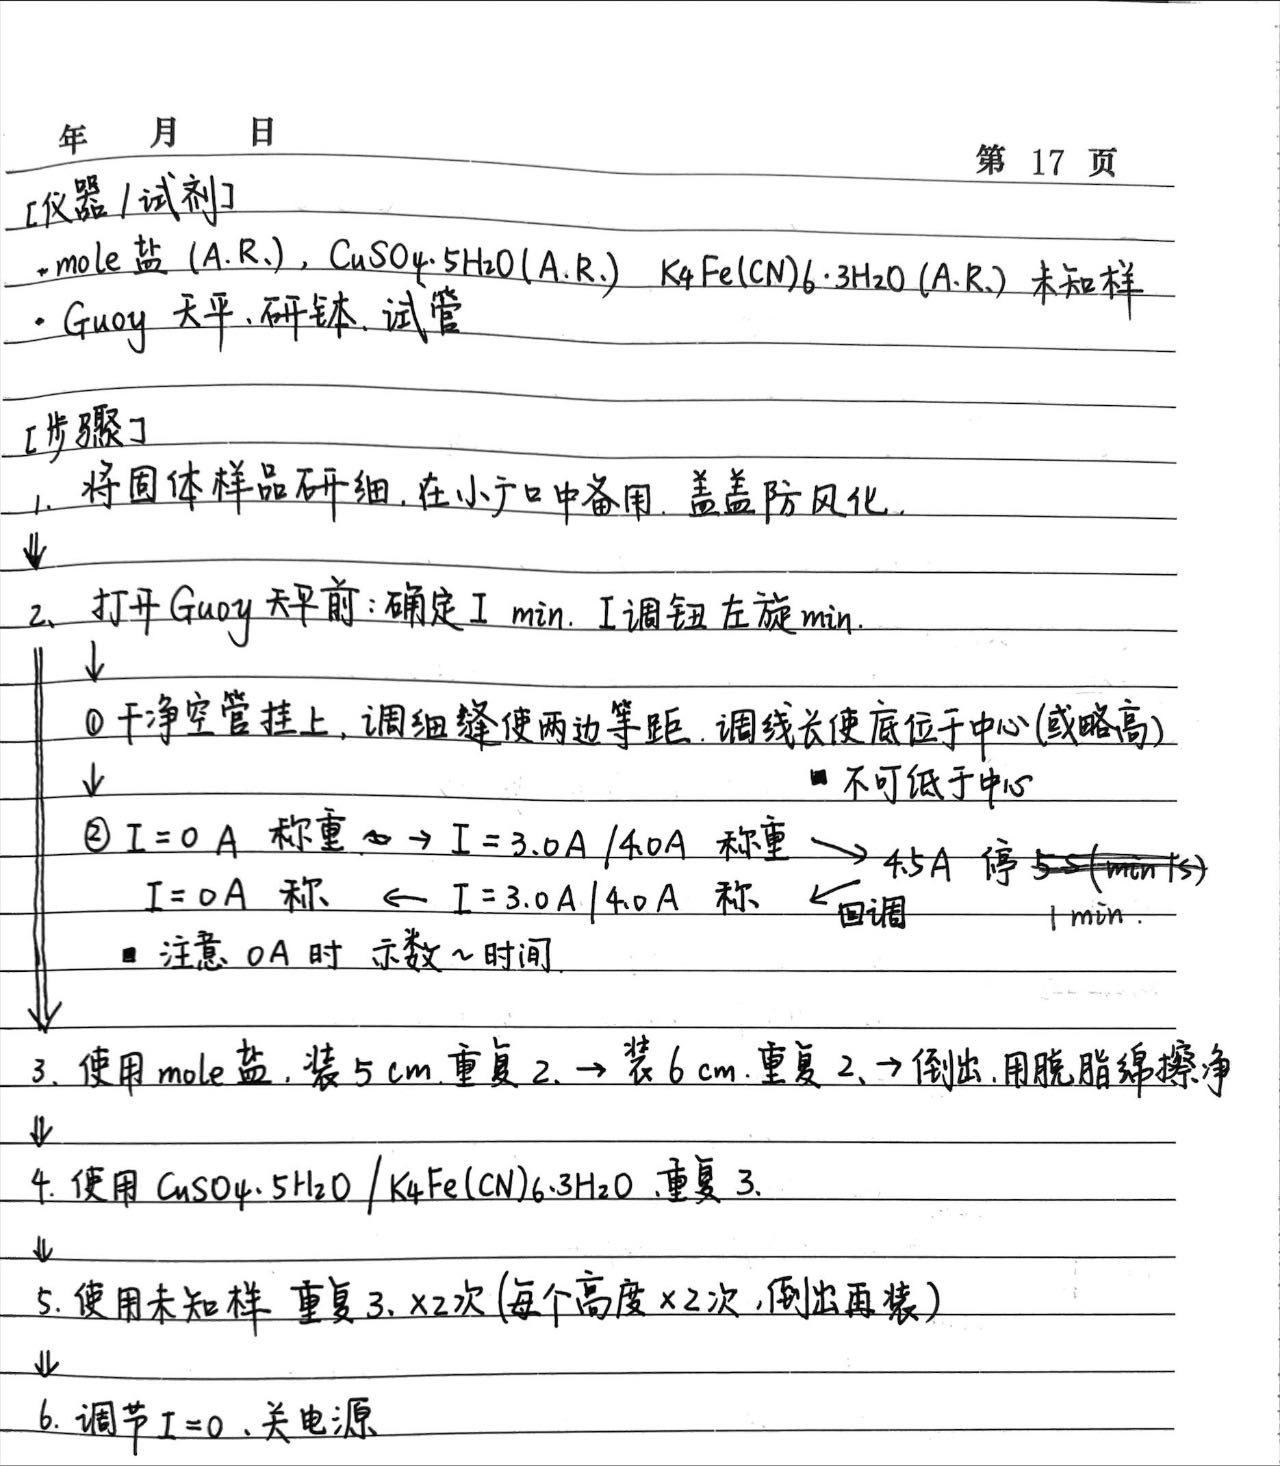 年 月 日
第 17 页
[仪器/试剂]
·mole盐 (A.R.), CuSO4·5H2O(A.R.) K4Fe(CN)6·3H2O(A.R.) 未知样
· Guoy 天平、研钵、试管
[步骤]
1. 将固体样品研细,在小广口中备用. 盖盖防风化.
⇓
2、 打开Guoy天平前:确定I min. I调钮左旋min.
↓
①干净空管挂上,调细缝使两边等距.调线长使底位于中心(或略高)
↓
▪ 不可低于中心
② I=0A 称重 → I=3.0A/4.0A 称重 ↘ 4.5A 停 1min.
I=0A 称 ← I=3.0A/4.0A 称 ↙回调
▪ 注意 0A时 示数~时间
3. 使用mole盐.装5cm.重复2.→装6cm.重复2、→倒出.用脱脂绵擦净
⇓
4. 使用 CuSO4·5H2O/K4Fe(CN)6·3H2O.重复3.
⇓
5. 使用未知样 重复3. ×2次(每个高度×2次,倒出再装)
⇓
6. 调节I=0、关电源